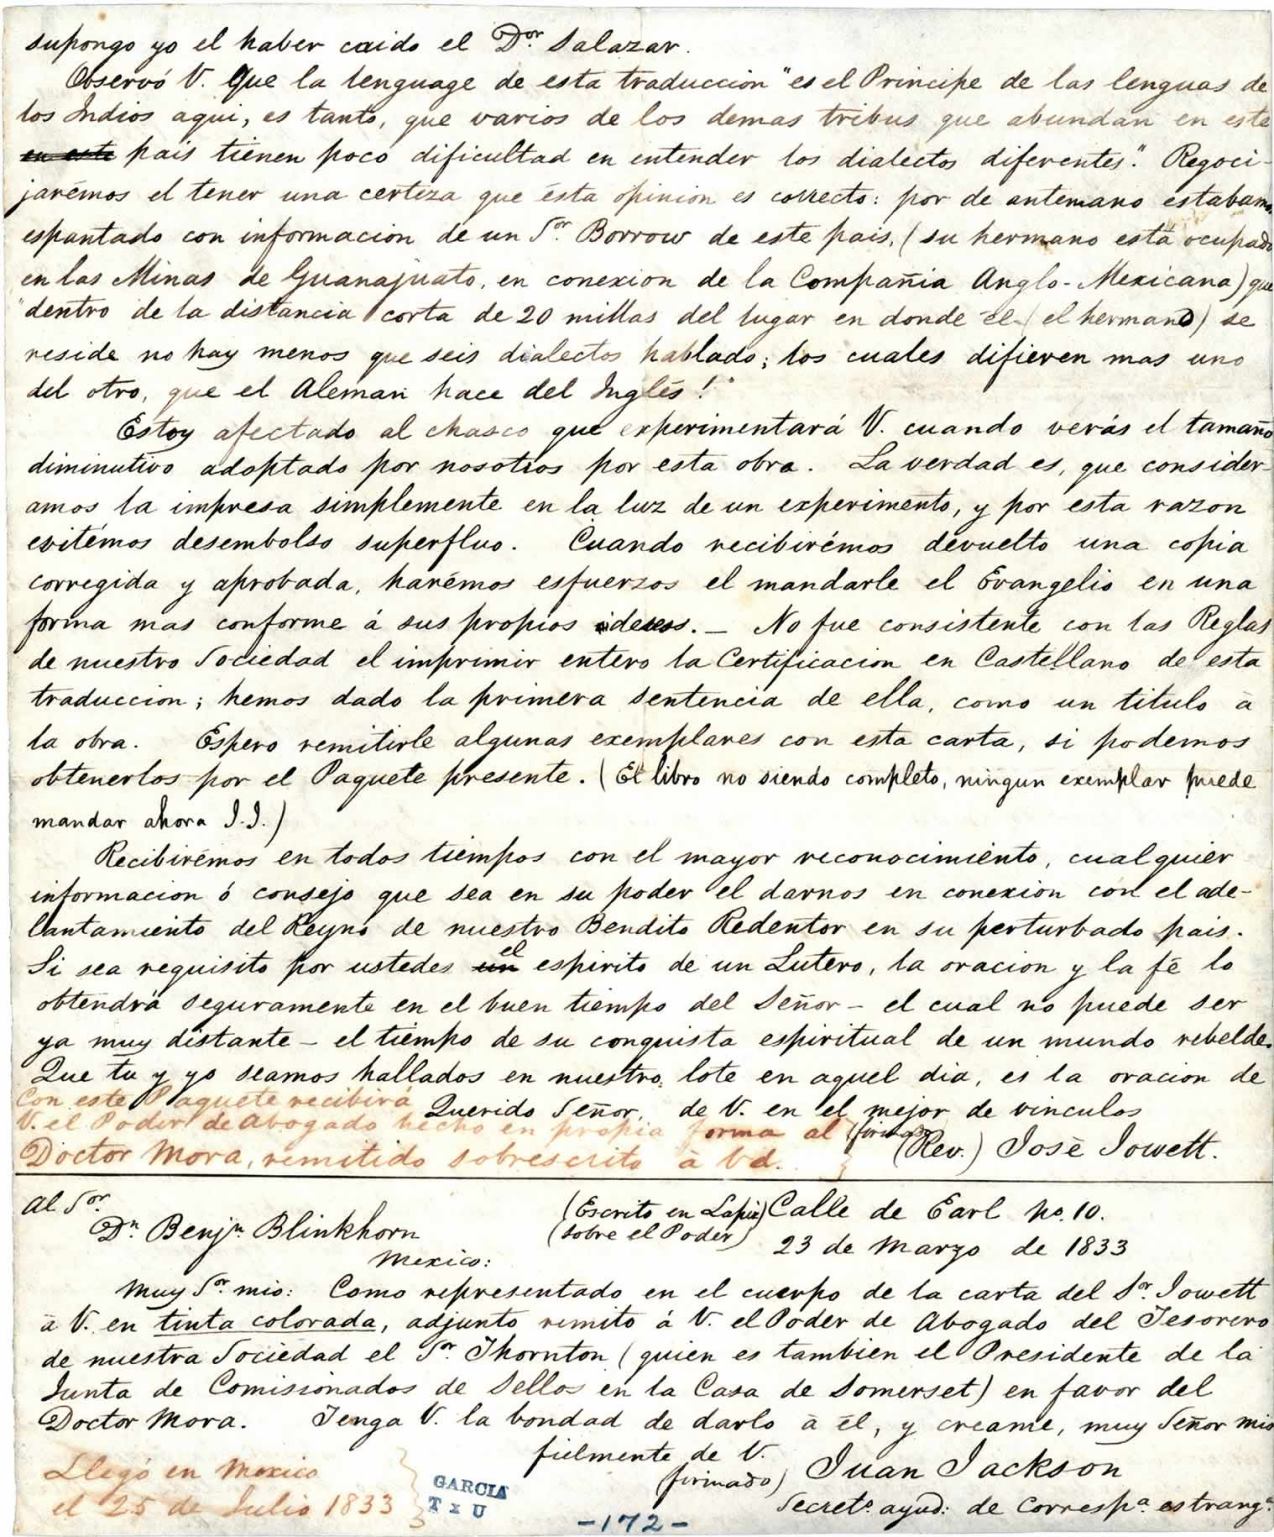 supongo yo el haber caido el Dor Salazar.
Observó V. Que la lenguage de esta traduccion "es el Principe de las lenguas de
los Indios aqui, es tanto, que varios de los demas tribus que abundan en este
en este pais tienen poco dificultad en entender los dialectos diferentes." Regoci-
jarémos el tener una certiza que ésta opinion es correcto: por de antemano estabamos
espantado con informacion de un Sor Borrow de este pais, (su hermano está ocupado
en las Minas de Guanajuato, en conexion de la Compañia Anglo-Mexicana) que
"dentro de la distancia corta de 20 millas del lugar en donde él (el hermano) se
reside no hay menos que seis dialectos hablado; los cuales difieren mas uno
del otro, que el Aleman hace del Inglés!"
Estoy afectado al chasco que experimentará V. cuando verás el tamaño
diminutivo adoptado por nosotros por esta obra. La verdad es, que consider-
amos la impresa simplemente en la luz de un experimento, y por esta razon
evitémos desembolso superfluo. Cuando recibirémos devuelto una copia
corregida y aprobada, harémos esfuerzos el mandarle el Evangelio en una
forma mas conforme á sus propios ideas. — No fue consistente con las Reglas
de nuestro Sociedad el imprimir entero la Certificacion en Castellano de esta
traduccion; hemos dado la primera sentencia de ella, como un titulo à
la obra. Espero remitirle algunas exemplares con esta carta, si podemos
obtenerlos por el Paquete presente. (El libro no siendo completo, ningun exemplar puede
mandar ahora J.J.)
Recibirémos en todos tiempos con el mayor reconocimiento, cualquier
informacion ó consejo que sea en su poder el darnos en conexion con el ade-
lantamiento del Reyno de nuestro Bendito Redentor en su perturbado pais.
Si sea requisito por ustedes un el espirito de un Lutero, la oracion y la fé lo
obtendrá seguramente en el buen tiempo del Señor — el cual no puede ser
ya muy distante — el tiempo de su conquista espiritual de un mundo rebelde.
Que tu y yo seamos hallados en nuestro lote en aquel dia, es la oracion de
Con este Paquete recibirá Querido Señor, de V. en el mejor de vinculos
V. el Poder de Abogado hecho en propia forma al (firmado)
Doctor Mora, remitido sobrescrito à Vd. (Rev.) José Jowett.
Al Sor
Dn Benjn Blinkhorn
Mexico:
(Escrito en Lapiz) Calle de Earl No. 10.
(sobre el Poder) 23 de Marzo de 1833
Muy Sor mio: Como representado en el cuerpo de la carta del Sor Jowett
à V. en tinta colorada, adjunto remito á V. el Poder de Abogado del Tesorero
de nuestra Sociedad el Sor Thornton (quien es tambien el Presidente de la
Junta de Comisionados de Sellos en la Casa de Somerset) en favor del
Doctor Mora. Tenga V. la bondad de darlo à él, y creame, muy Señor mio
fielmente de V.
(firmado) Juan Jackson
Secreto ayud: de Correspa estranga
Llegó en Mexico
el 25 de Julio 1833
GARCIA
T x U
-172-